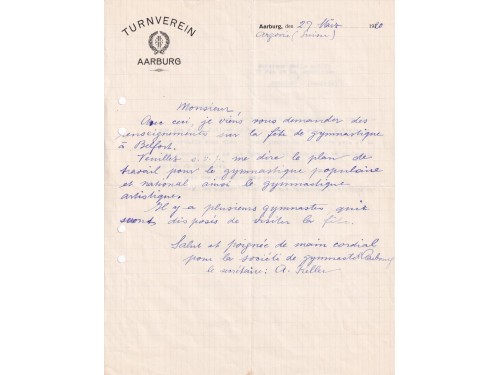 TURNVEREIN
AARBURG
Aarburg, den 27 Mars 1920
Argovie (Suisse)
Monsieur
Avec ceci, je viens vous demander des
renseignements sur la fête de gymnastique
à Belfort.
Veuillez s.v.p. me dire le plan de
travail pour le gymnastique populaire
et national ainsi le gymnastique
artistique.
Il y a plusieurs gymnastes qui
seront disposés de visiter la fête.
Salut et poignée de main cordial
pour la société de gymnaste Aarburg
le : A.